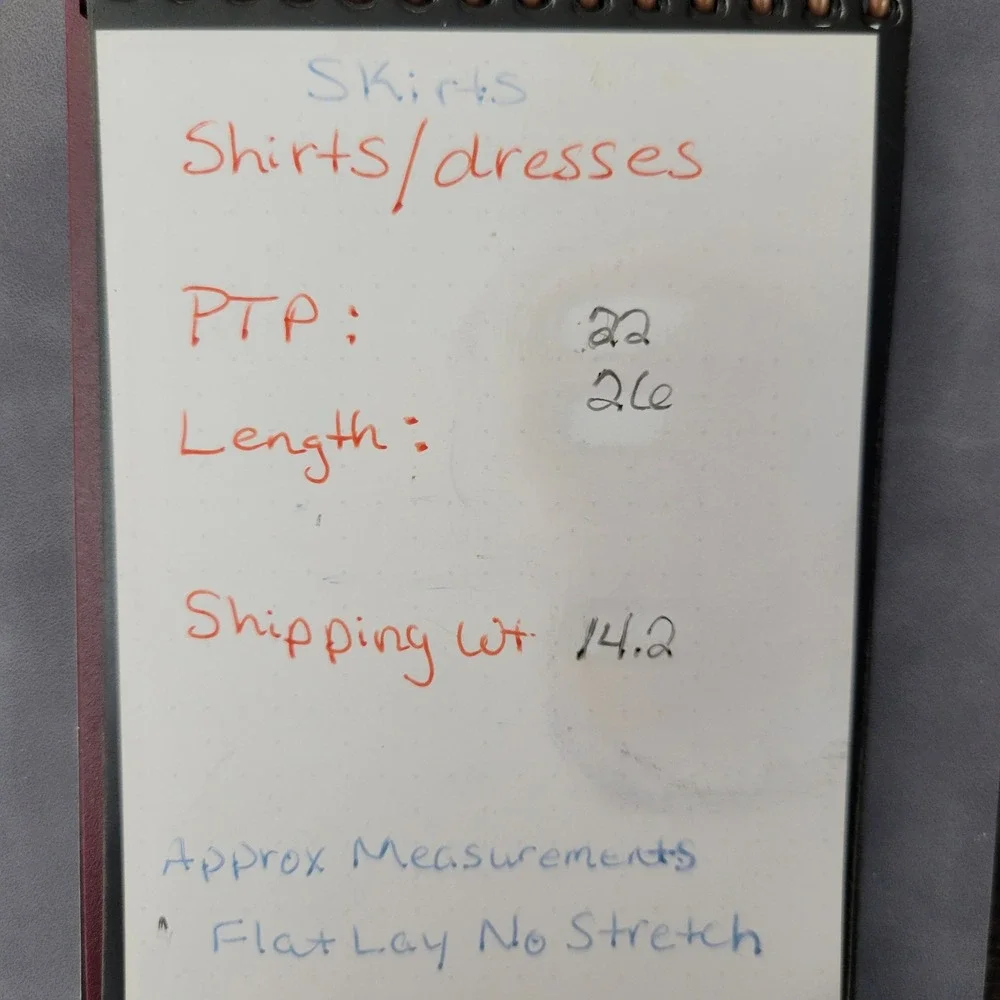 Skirts
Shirts/dresses
PTP: 22
26
Length:
Shipping Wt 14.2
Approx Measurements
Flat Lay No Stretch